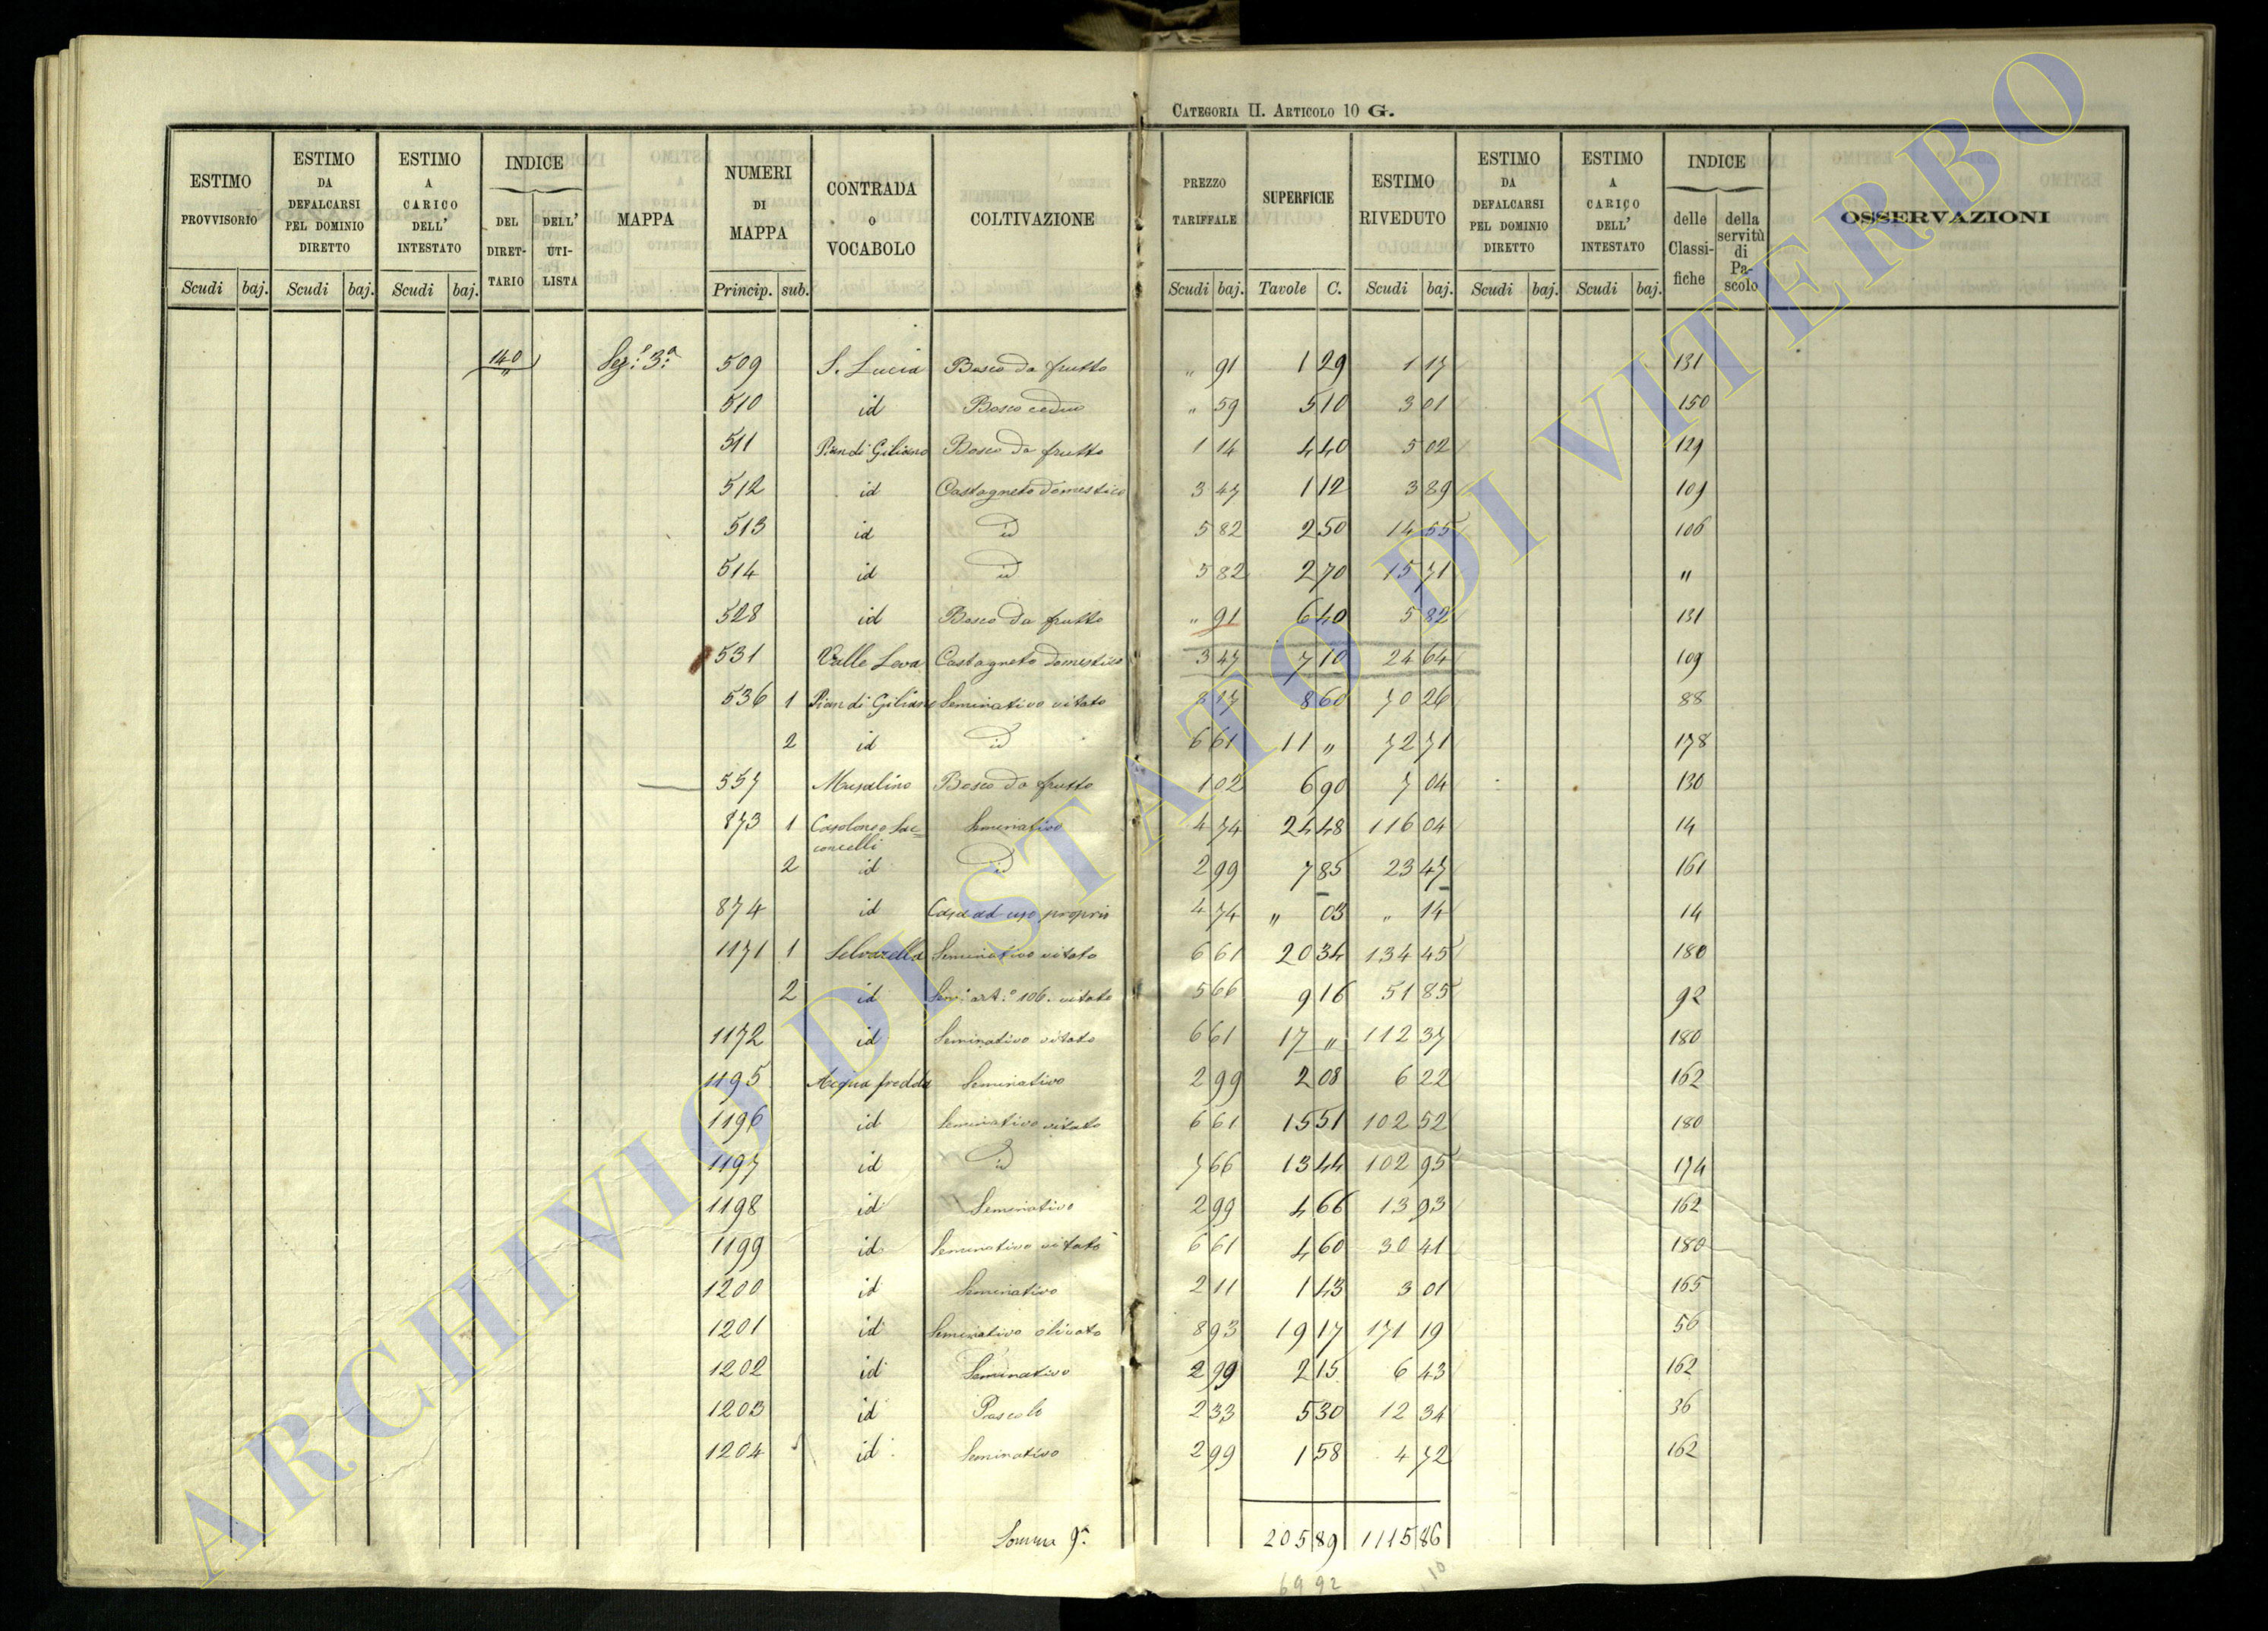 CATEGORIA II. ARTICOLO 10 G.
ESTIMO PROVVISORIO Scudi baj.
ESTIMO DA DEFALCARSI PEL DOMINIO DIRETTO Scudi baj.
ESTIMO A CARICO DELL' INTESTATO Scudi baj.
INDICE DEL DIRETTARIO DELL' UTILISTA
MAPPA
NUMERI DI MAPPA Princip. sub.
CONTRADA o VOCABOLO
COLTIVAZIONE
PREZZO TARIFFALE Scudi baj.
SUPERFICIE Tavole C.
ESTIMO RIVEDUTO Scudi baj.
ESTIMO DA DEFALCARSI PEL DOMINIO DIRETTO Scudi baj.
ESTIMO A CARICO DELL' INTESTATO Scudi baj.
INDICE delle Classifiche della servitù di Pascolo
OSSERVAZIONI
140 Sez.e 3.a 509 S. Lucia Bosco da frutto " 91 1 29 1 17 131
510 id Bosco ceduo " 59 5 10 3 01 150
511 Pian di Giliano Bosco da frutto 1 14 4 40 5 02 129
512 id Castagneto domestico 3 47 1 12 3 89 109
513 id id 5 82 2 50 14 55 106
514 id id 5 82 2 70 15 71 "
528 id Bosco da frutto " 91 6 40 5 82 131
531 Valle Leva Castagneto domestico 3 47 7 10 24 64 109
536 1 Pian di Giliano Seminativo vitato 8 17 8 60 70 26 88
2 id id 6 61 11 " 72 71 178
557 Musalino Bosco da frutto 1 02 6 90 7 04 130
873 1 Casalongo Sac= Seminativo 4 74 24 48 116 04 14
concelli
2 id id 2 99 7 85 23 47 161
874 id Casa ad uso proprio 4 74 " 03 " 14 14
1171 1 Selvarella Seminativo vitato 6 61 20 34 134 45 180
2 id Sem.o art.o 106. vitato 5 66 9 16 51 85 92
1172 id Seminativo vitato 6 61 17 " 112 37 180
1195 Acqua fredda Seminativo 2 99 2 08 6 22 162
1196 id Seminativo vitato 6 61 15 51 102 52 180
1197 id id 7 66 13 44 102 95 174
1198 id Seminativo 2 99 4 66 13 93 162
1199 id Seminativo vitato 6 61 4 60 30 41 180
1200 id Seminativo 2 11 1 43 3 01 165
1201 id Seminativo olivato 8 93 19 17 171 19 56
1202 id Seminativo 2 99 2 15 6 43 162
1203 id Pascolo 2 33 5 30 12 34 36
1204 id Seminativo 2 99 1 58 4 72 162
Somma 9.a 205 89 1115 86
69 92 10
ARCHIVIO DI STATO DI VITERBO